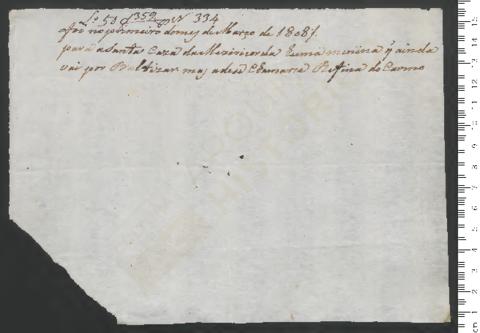 Lº 50 f 352 Nº 334
foi no primeiro do mes de Março de 1808
para a Santa Caza da Mizericorda huma minina q ainda
vai por Baltizar mas adese Chamarse Rufina do Carmo